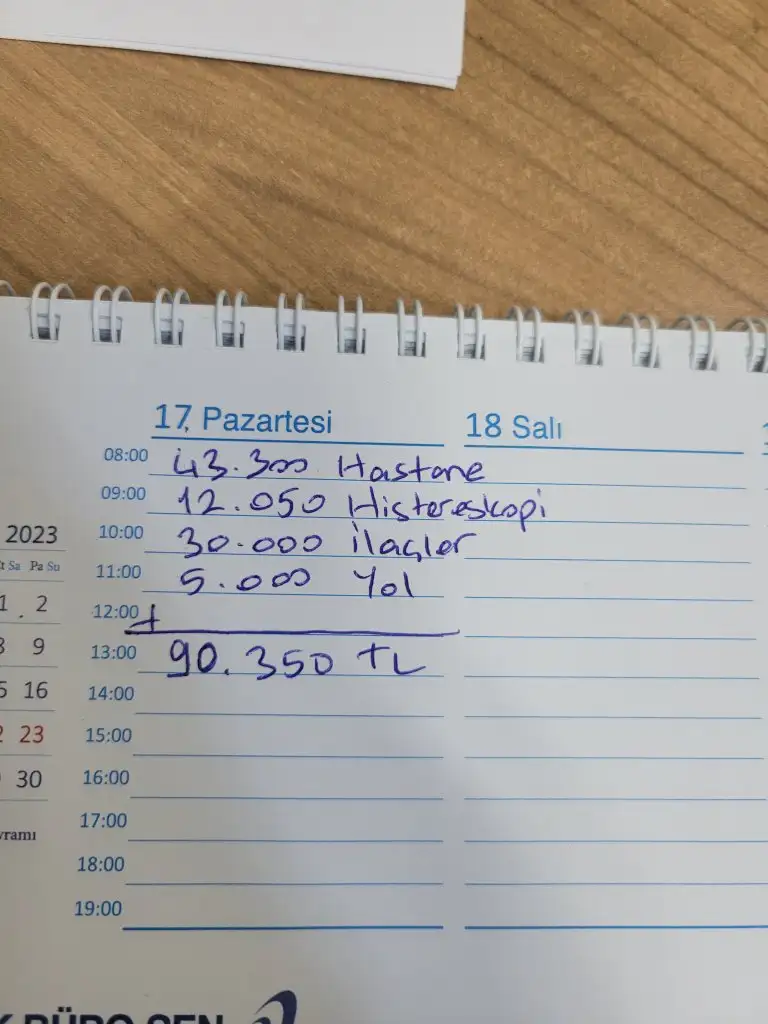 17 Pazartesi
18 Salı
08:00 43.300 Hastane
09:00 12.050 Histereskopi
10:00 30.000 ilaçler
11:00 5.000 Yol
12:00 +
13:00 90.350 TL
14:00
15:00
16:00
17:00
18:00
19:00
2023
Sa Pa Su
1 2
9
16
23
30
BÜRO SEN